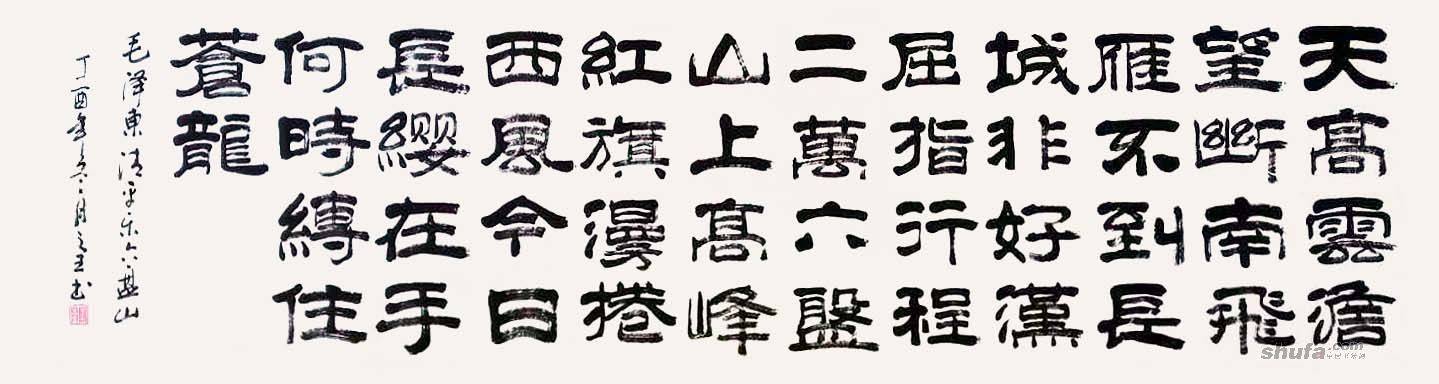 天髙雲澹
望斷南飛
雁不到長
城非好漢
屈指行程
二萬六盤
山上髙峰
紅旗漫捲
西風今日
長纓在手
何時縛住
蒼龍
毛泽東清平乐六盘山
丁酉年冬月书
shufa.com